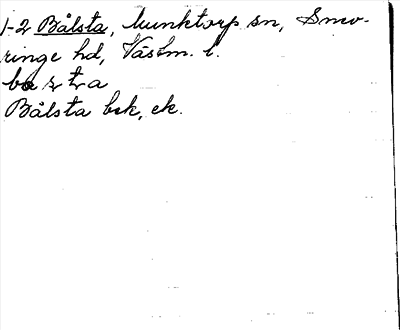 1-2 Bålsta, Munktorp sn, Snev-
ringe hd, Västm. l.
Bålsta bsk, ek.